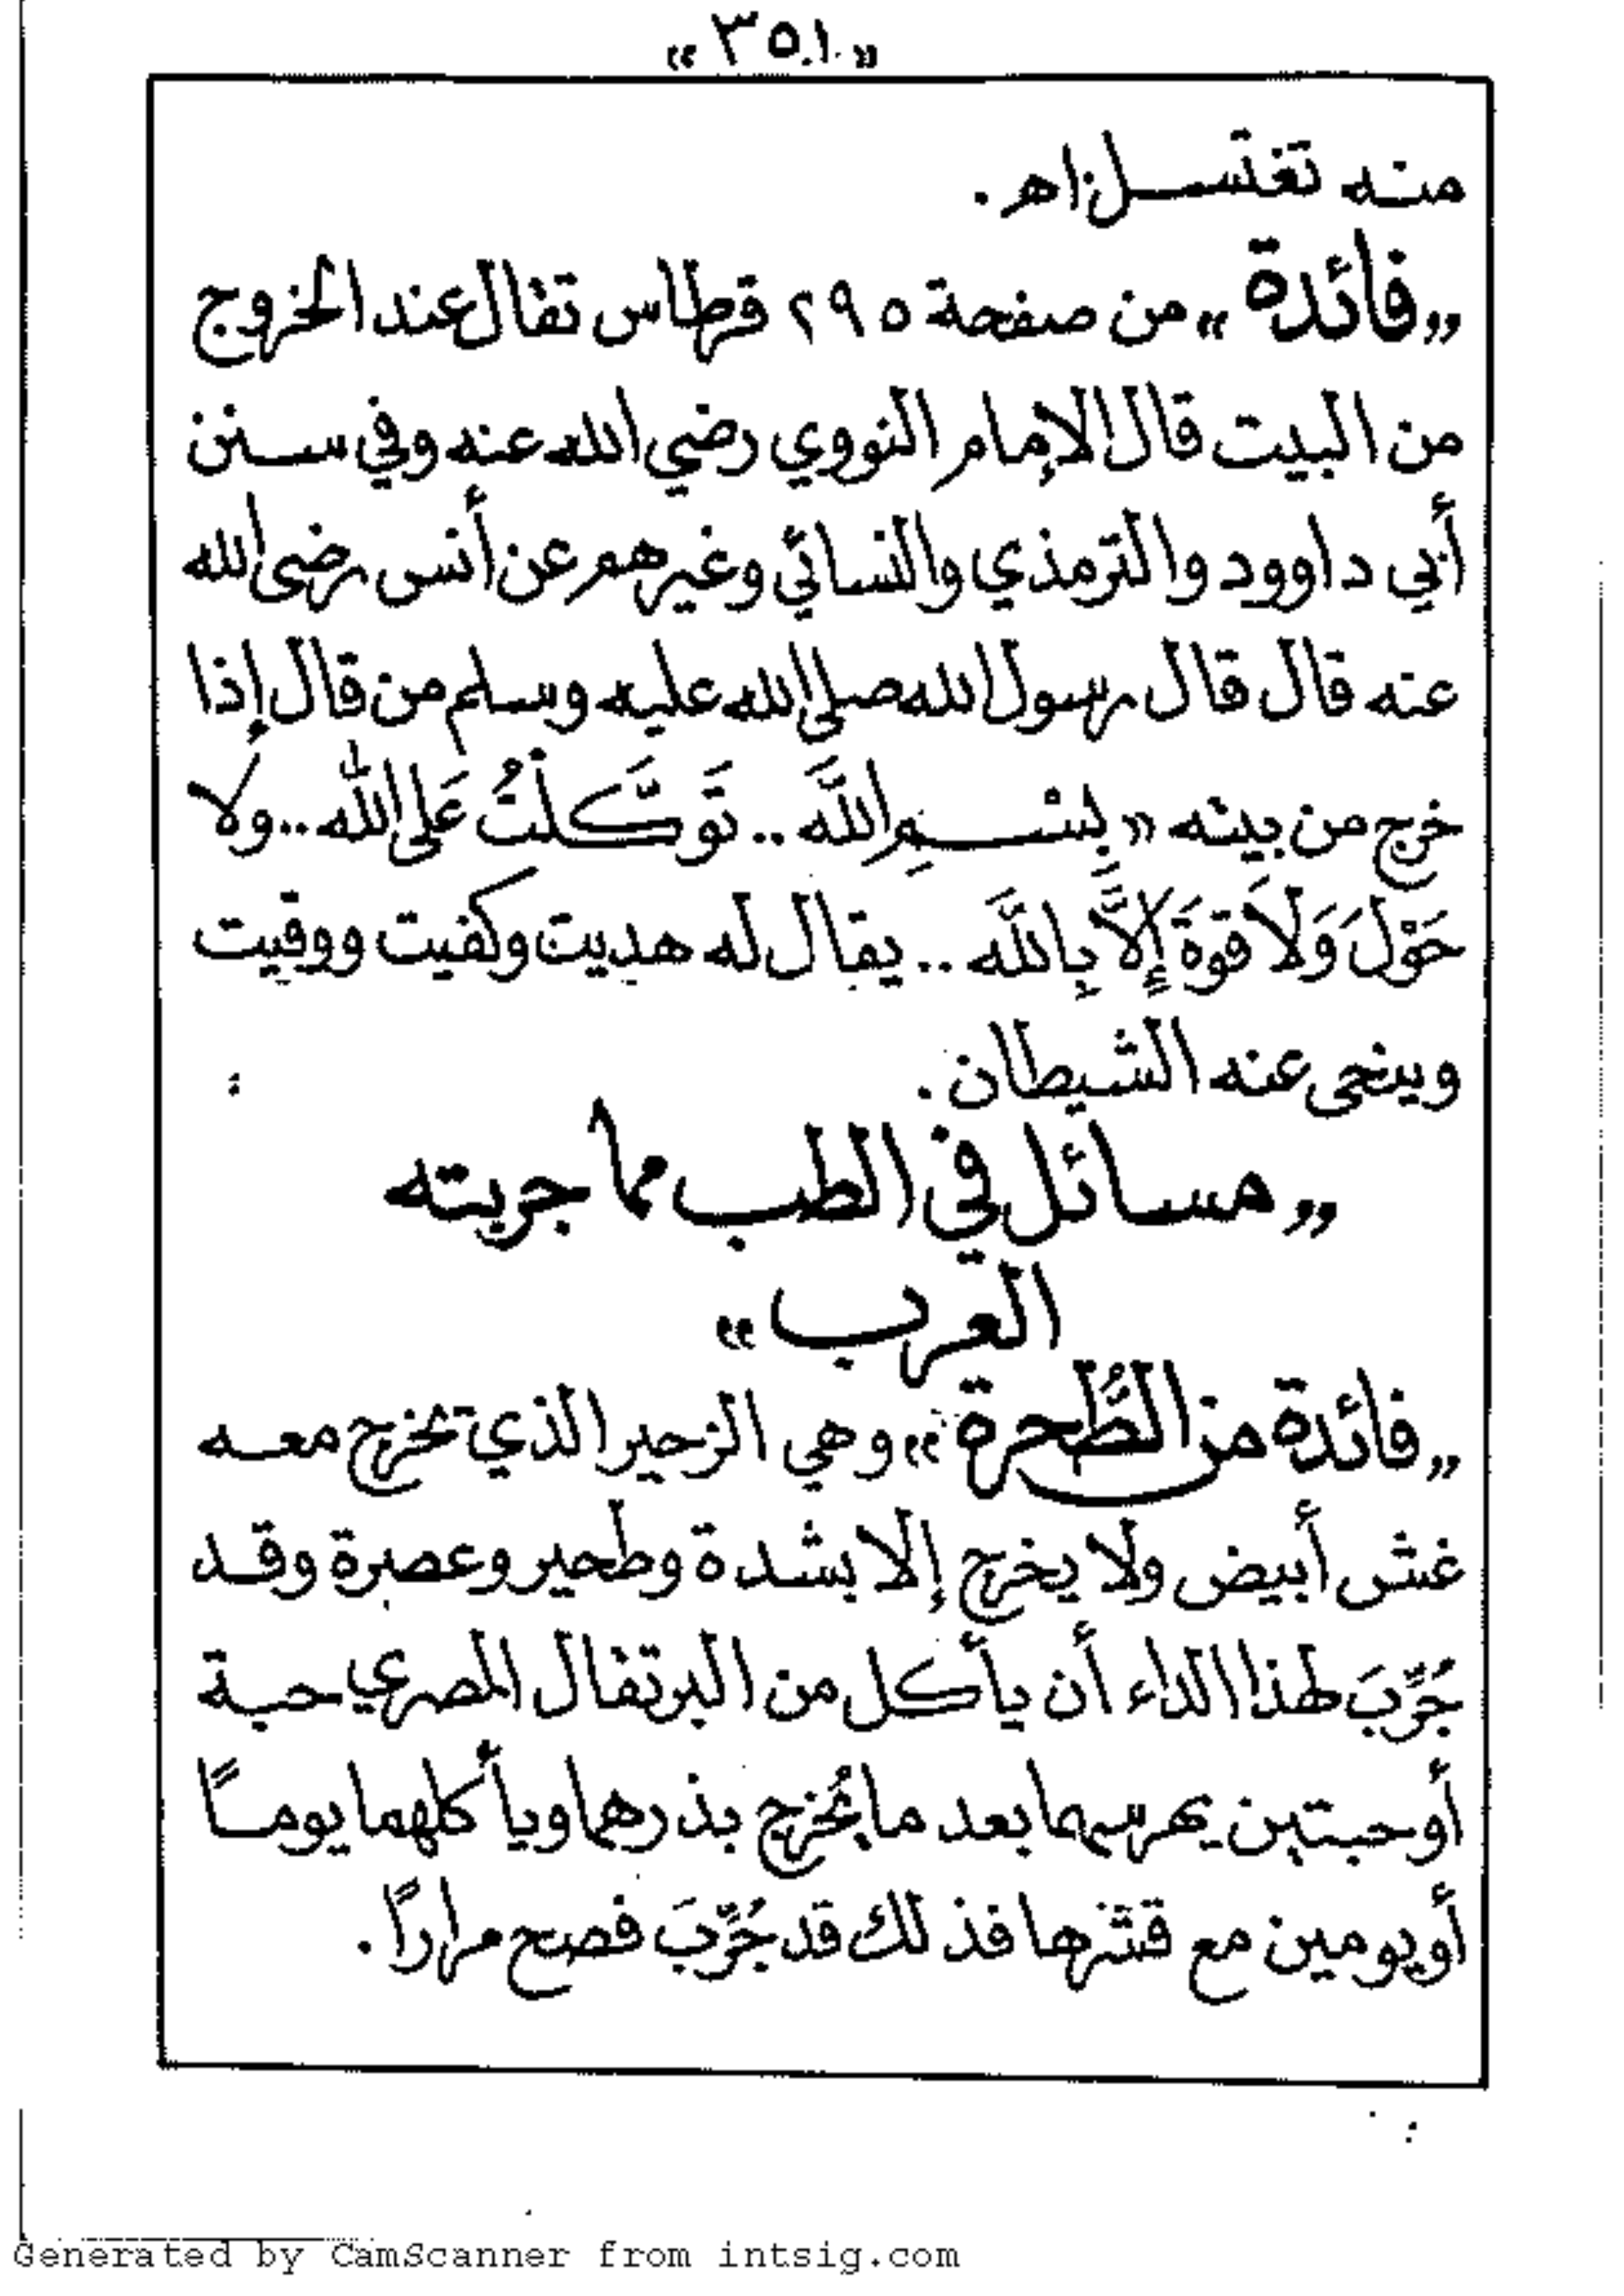 «٣٥١»
منه تغتسل اهـ.
«فائدة» من صفحة ٢٩٥ قرطاس تقال عند الخروج
من البيت قال الإمام النووي رضي الله عنه وفي سنن
أبي داوود والترمذي والنسائي وغيرهم عن أنس رضي الله
عنه قال قال رسول الله صلى الله عليه وسلم من قال إذا
خرج من بيته «بِسْمِ اللَّه .. تَوَكَّلْتُ عَلى اللّٰه .. ولَا
حَوْلَ وَلَا قوةَ إِلَّا بِاللَّه .. يقال له هديت وكفيت ووقيت
وينحى عنه الشيطان.
«مسائل في الطب مما جربته
العرب»
«فائدة من الطُّحرة» وهي الزحير الذي تخرج معه
غثى أبيض ولا يخرج إلا بشدة وطحير وعصرة وقد
جُرِّبَ لهذا الداء أن يأكل من البرتقال المصري حبة
أو حبتين يهرسهما بعد ما يُخرج بذرهما ويأكلهما يوماً
أو يومين مع قشرها فذلك قد جُرِّبَ فصح مراراً.
Generated by CamScanner from intsig.com